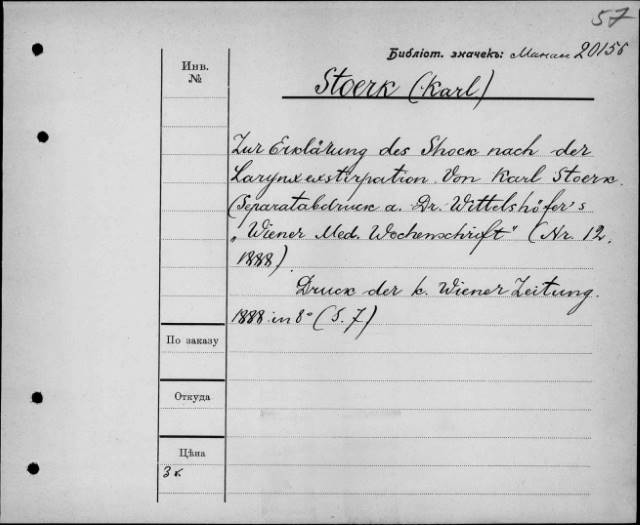 57
Библіот. значекъ: 20156
Инв.
№
Stoerk (Karl)
Zur Erklärung des Shock nach der
Larynxexstirpation. Von Karl Stoerk.
(Separatabdruck a. Dr. Wittelshöfer's
„Wiener Med. Wochenschrift" (Nr. 12.
1888).
Druck der k. Wiener Zeitung.
1888. in 8° (S. 7)
По заказу
Откуда
Цѣна
3 к.